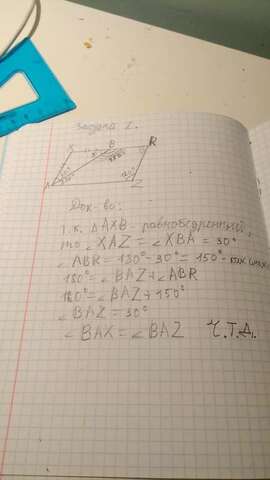 Задача 2.
X B R
A Z
Док-во:
Т.к. △AXB - равнобедренный,
то ∠XAZ = ∠XBA = 30°
∠ABR = 180° - 30° = 150° - как
180° = ∠BAZ + ∠ABR
180° = ∠BAZ + 150°
∠BAZ = 30°
∠BAX = ∠BAZ Ч.Т.Д.